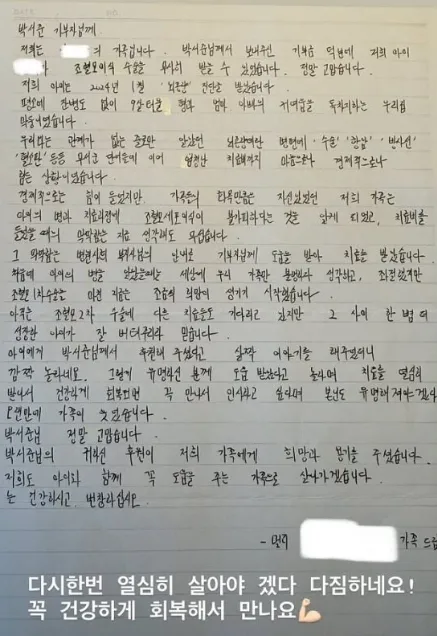 박서준 기부자님께.
저희는 의 가족입니다. 박서준님께서 보내주신 기부금 덕분에 저희 아이
가 조혈모이식 수술을 무사히 받을 수 있었습니다. 정말 고맙습니다.
저희 아이는 2024년 1월 '뇌종양' 진단을 받았습니다.
평소에 한번도 없이 9살 터울 형과 엄마 아빠의 사랑을 독차지하는 우리집
막둥이였습니다.
우리와는 관계가 없는 줄로만 알았던 뇌종양이란 병명에 '수술' '항암' '방사선'
'혈소판' 등등 무서운 단어들에 이어 엄청난 치료비까지 마음으로나 경제적으로나
힘든 상황이었습니다.
경제적으로는 힘이 들었지만, 가족의 화목만큼은 자신있었던 저희 가족은
아이의 병과 치료과정에 조혈모세포이식이 불가피하다는 것을 알게 되었고, 치료비를
들었을 때의 막막함은 지금 생각해도 무섭습니다.
그 막막함은 병원사회복지사님의 안내로 기부자님께 도움을 받아 치료를 받았습니다.
처음에 아이의 병을 알았을때는 세상에 우리 가족만 불행하다 생각하고, 좌절했지만
조혈모 1차수술을 마친 지금은 조금의 희망이 생기기 시작했습니다.
아직은 조혈모 2차 수술에 다른 치료들도 기다리고 있지만 그 사이 한 뼘 더
성장한 아이가 잘 버텨주리라 믿습니다.
아이에게 박서준님께서 후원해 주셨다고 살짝 이야기를 해주었더니
깜짝 놀라네요. 그렇게 유명하신 분께 도움 받았다고 놀라며 치료를 열심히
받아서 건강하게 회복되면 꼭 만나서 인사하고 싶다며 본인도 유명해져야겠다
오랜만에 가족이 웃었습니다.
박서준님 정말 고맙습니다.
박서준님의 귀하신 후원이 저희 가족에게 희망과 용기를 주셨습니다.
저희도 아이와 함께 꼭 도움을 주는 가족으로 살아가겠습니다.
늘 건강하시고 번창하십시오.
- 가족 드림
다시한번 열심히 살아야 겠다 다짐하네요!
꼭 건강하게 회복해서 만나요💪🏻